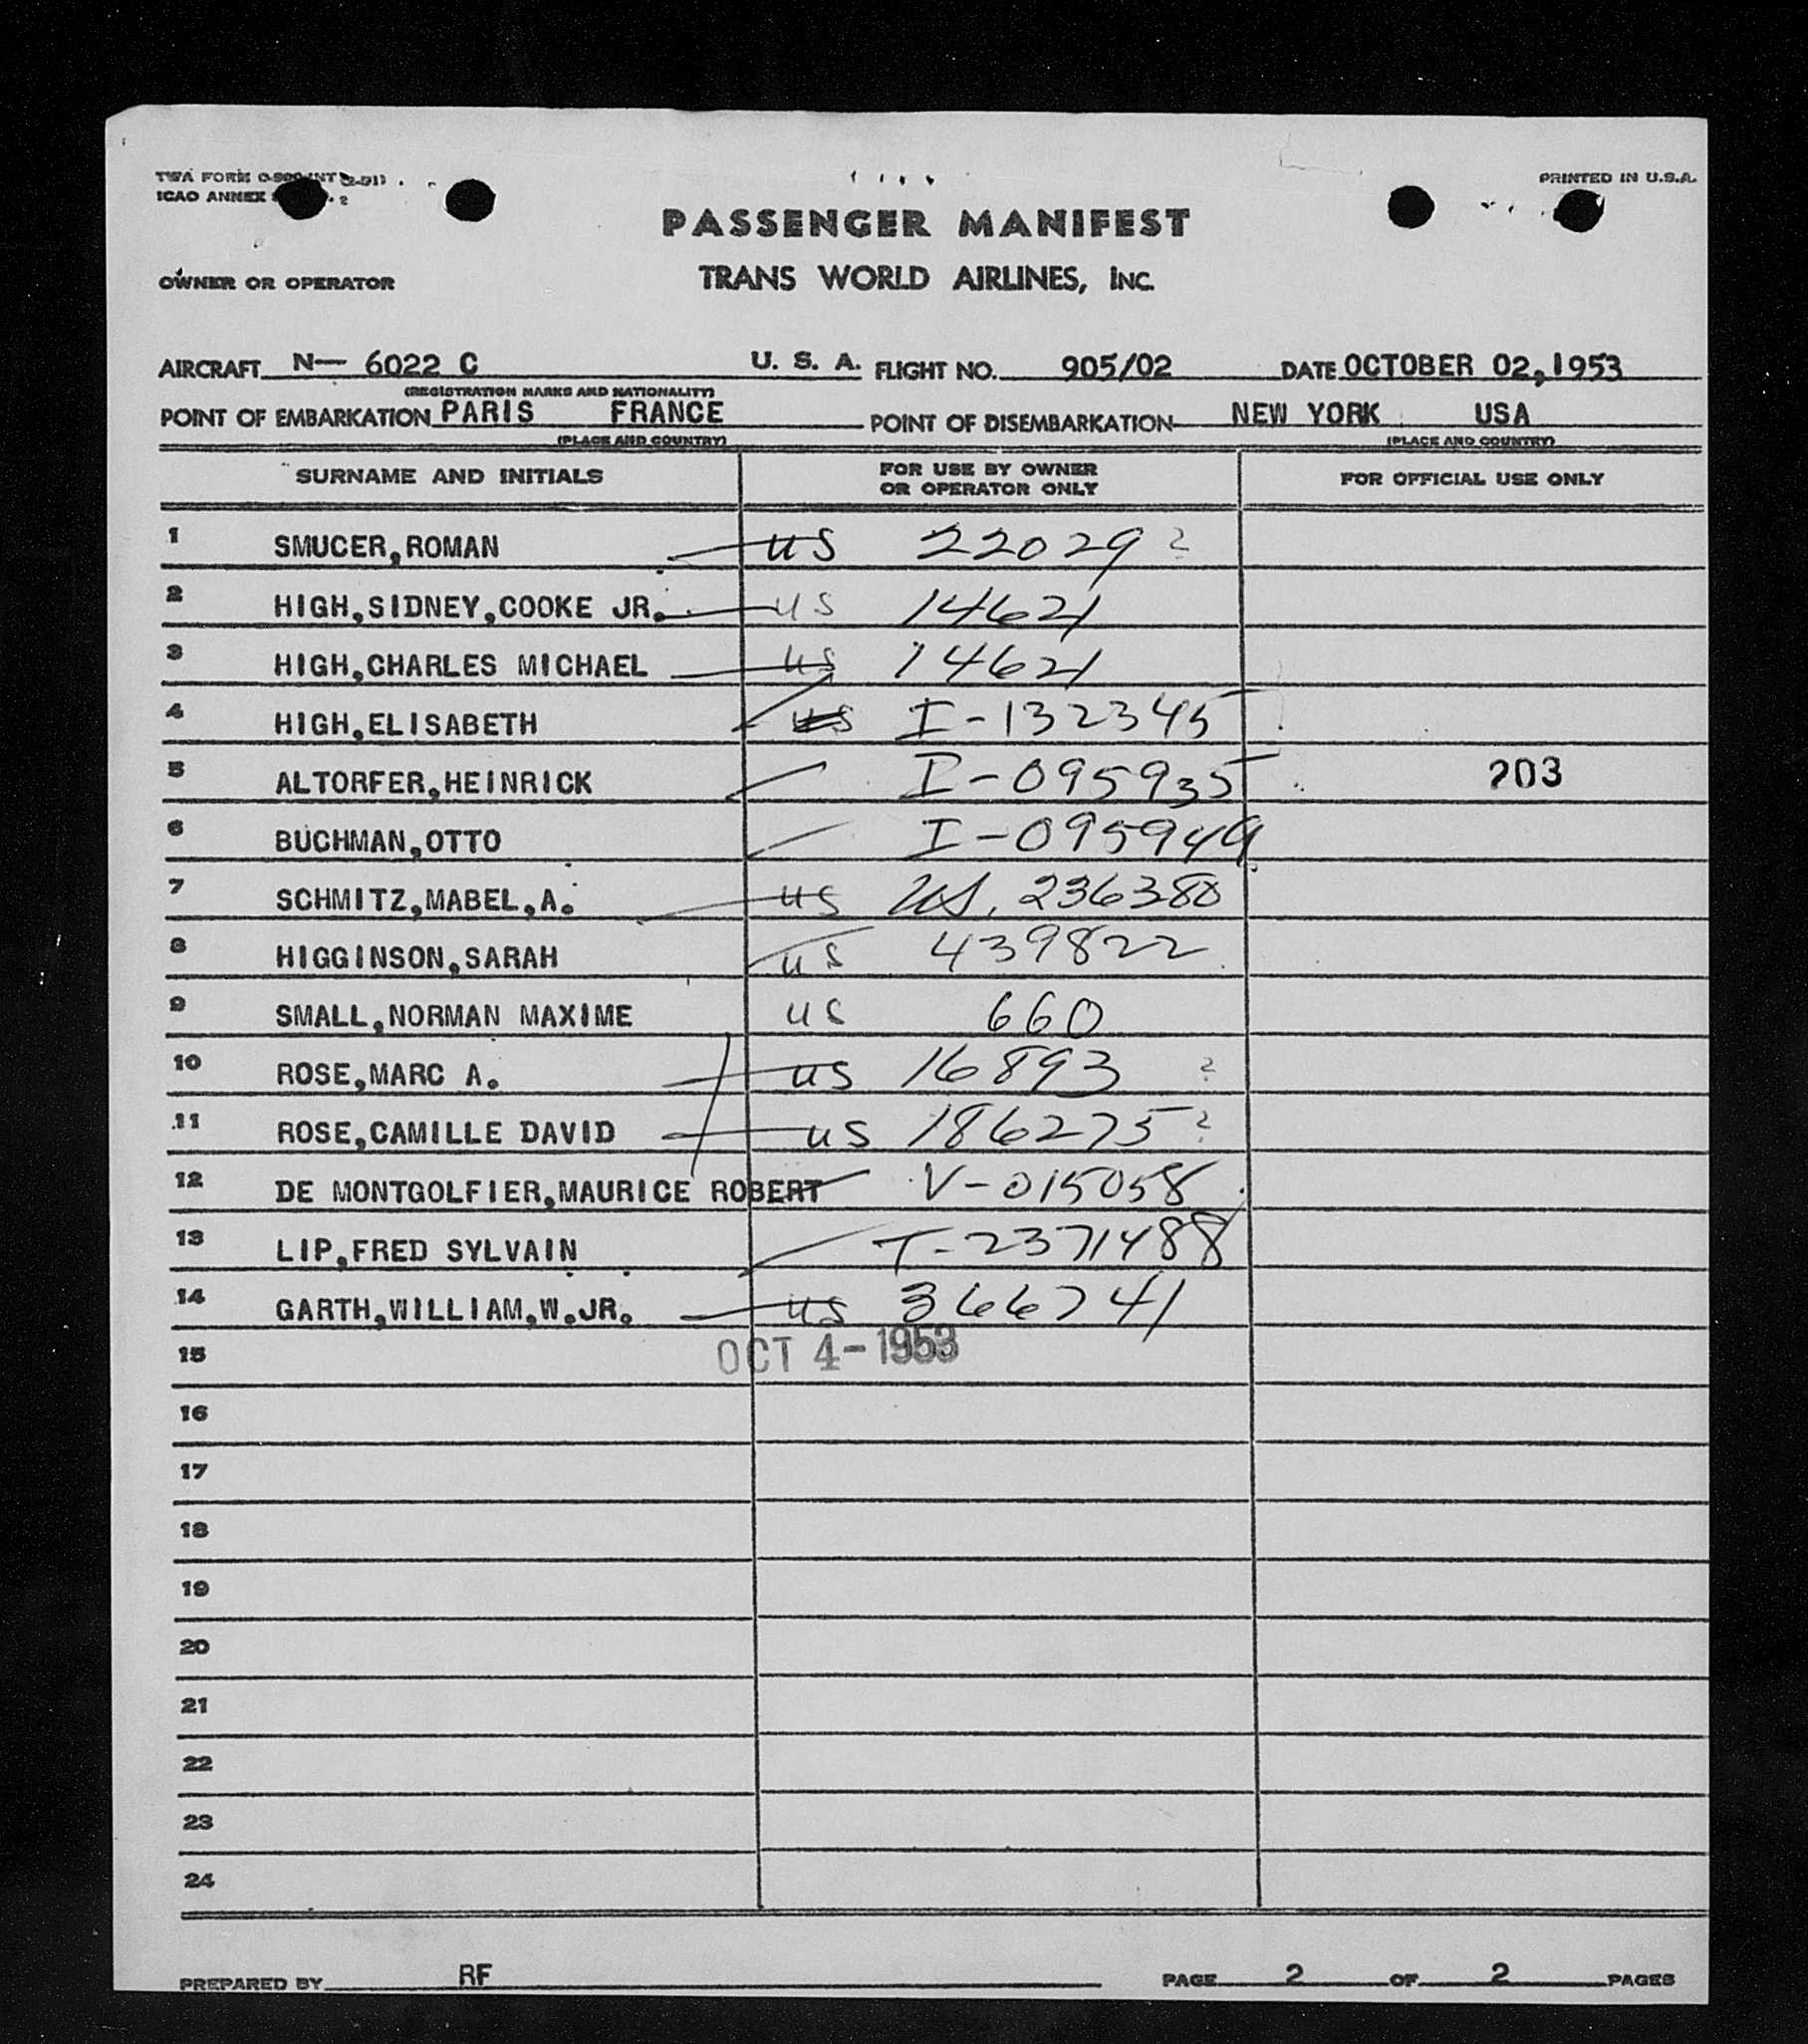 TWA FORM
ICAO ANNEX
PRINTED IN U.S.A.
PASSENGER MANIFEST
TRANS WORLD AIRLINES, INC.
OWNER OR OPERATOR
AIRCRAFT N— 6022 C U. S. A. FLIGHT NO. 905/02 DATE OCTOBER 02,1953
(REGISTRATION MARKS AND NATIONALITY)
POINT OF EMBARKATION PARIS FRANCE POINT OF DISEMBARKATION NEW YORK USA
(PLACE AND COUNTRY) (PLACE AND COUNTRY)
SURNAME AND INITIALS FOR USE BY OWNER OR OPERATOR ONLY FOR OFFICIAL USE ONLY
1 SMUCER,ROMAN US 22029 ?
2 HIGH,SIDNEY,COOKE JR. US 14621
3 HIGH,CHARLES MICHAEL US 14621
4 HIGH,ELISABETH US I-132345
5 ALTORFER,HEINRICK I-095935 203
6 BUCHMAN,OTTO I-095949
7 SCHMITZ,MABEL,A. US US. 236380
8 HIGGINSON,SARAH US 439822
9 SMALL,NORMAN MAXIME US 660
10 ROSE,MARC A. US 16893 ?
11 ROSE,CAMILLE DAVID US 186275 ?
12 DE MONTGOLFIER,MAURICE ROBERT V-015058
13 LIP,FRED SYLVAIN T-2371488
14 GARTH,WILLIAM,W.JR. US 366741
15 OCT 4-1953
16
17
18
19
20
21
22
23
24
PREPARED BY RF PAGE 2 OF 2 PAGES